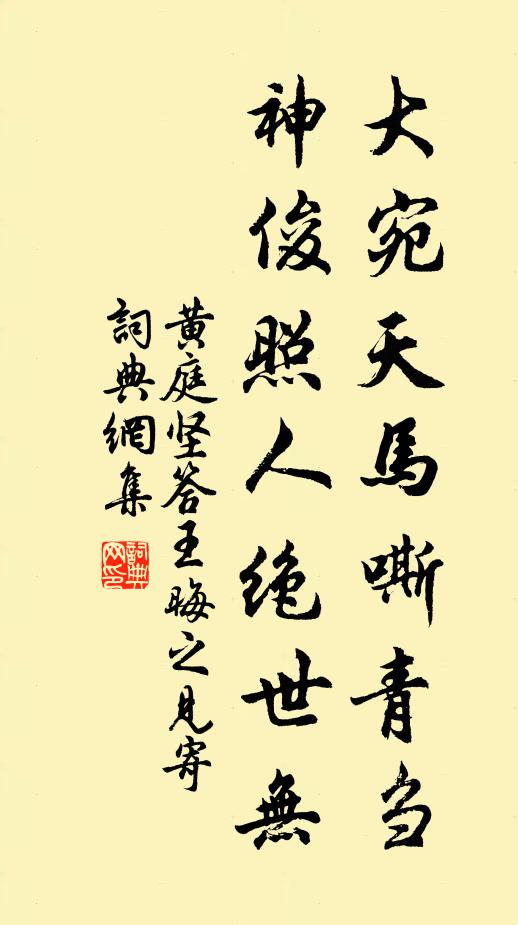 大宛天馬嘶青刍
神俊照人絶世無
黄庭坚答王晦之見寄
詞典網集
詞典网印